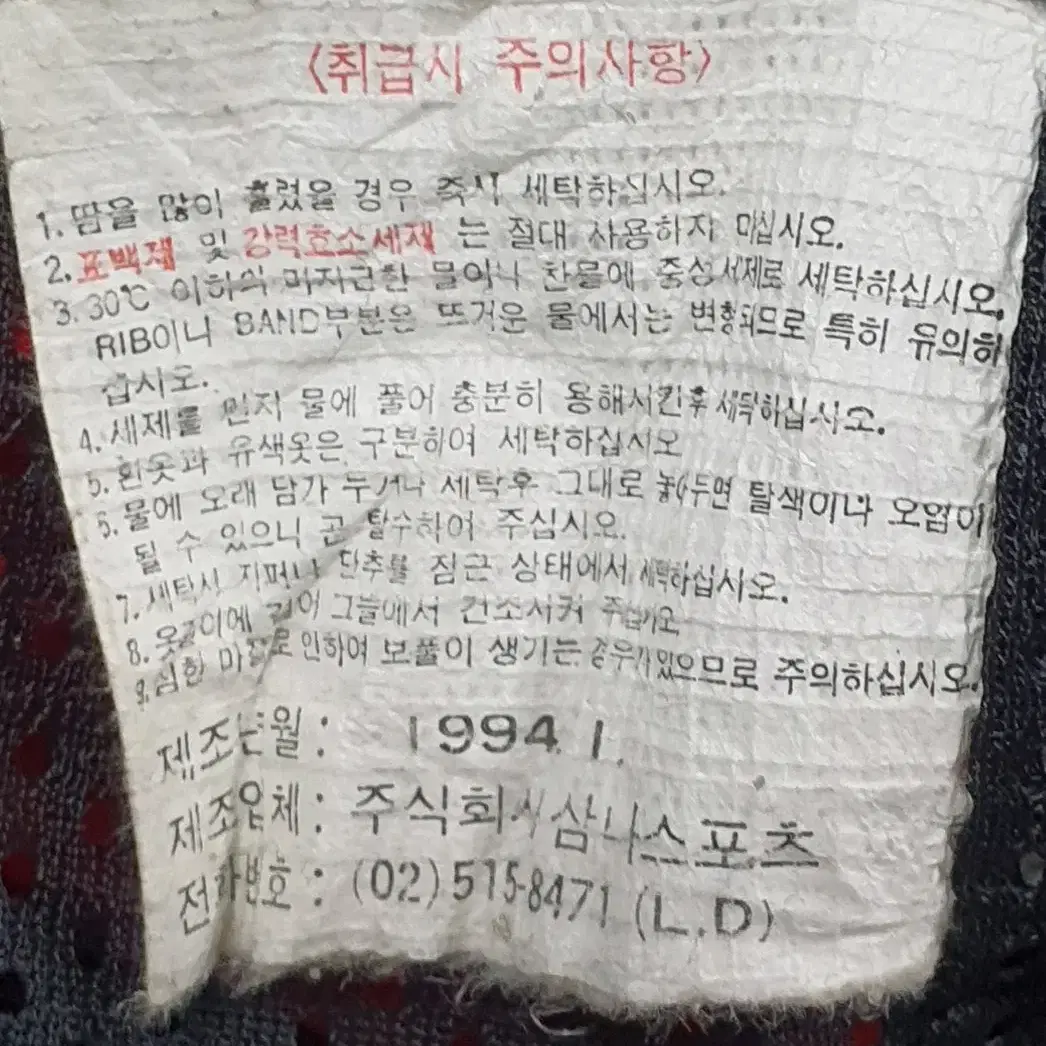 <취급시 주의사항>
1. 땀을 많이 흘렸을 경우 즉시 세탁하십시오.
2. 표백제 및 강력효소세제 는 절대 사용하지 마십시오.
3. 30℃ 이하의 미지근한 물이나 찬물에 중성세제로 세탁하십시오.
RIB이나 BAND부분은 뜨거운 물에서는 변형되므로 특히 유의하
십시오.
4. 세제를 먼저 물에 풀어 충분히 용해시킨후 세탁하십시오.
5. 흰옷과 유색옷은 구분하여 세탁하십시오
6. 물에 오래 담가 두거나 세탁후 그대로 놓아두면 탈색이나 오염이
될 수 있으니 곧 탈수하여 주십시오.
7. 세탁시 지퍼나 단추를 잠근 상태에서 세탁하십시오.
8. 옷걸이에 걸어 그늘에서 건조시켜 주십시오
9. 심한 마찰로 인하여 보풀이 생기는 경우가있으므로 주의하십시오.
제조년월 : 1994. 1.
제조업체 : 주식회사 삼나스포츠
전화번호 : (02) 515-8471 (L.D)